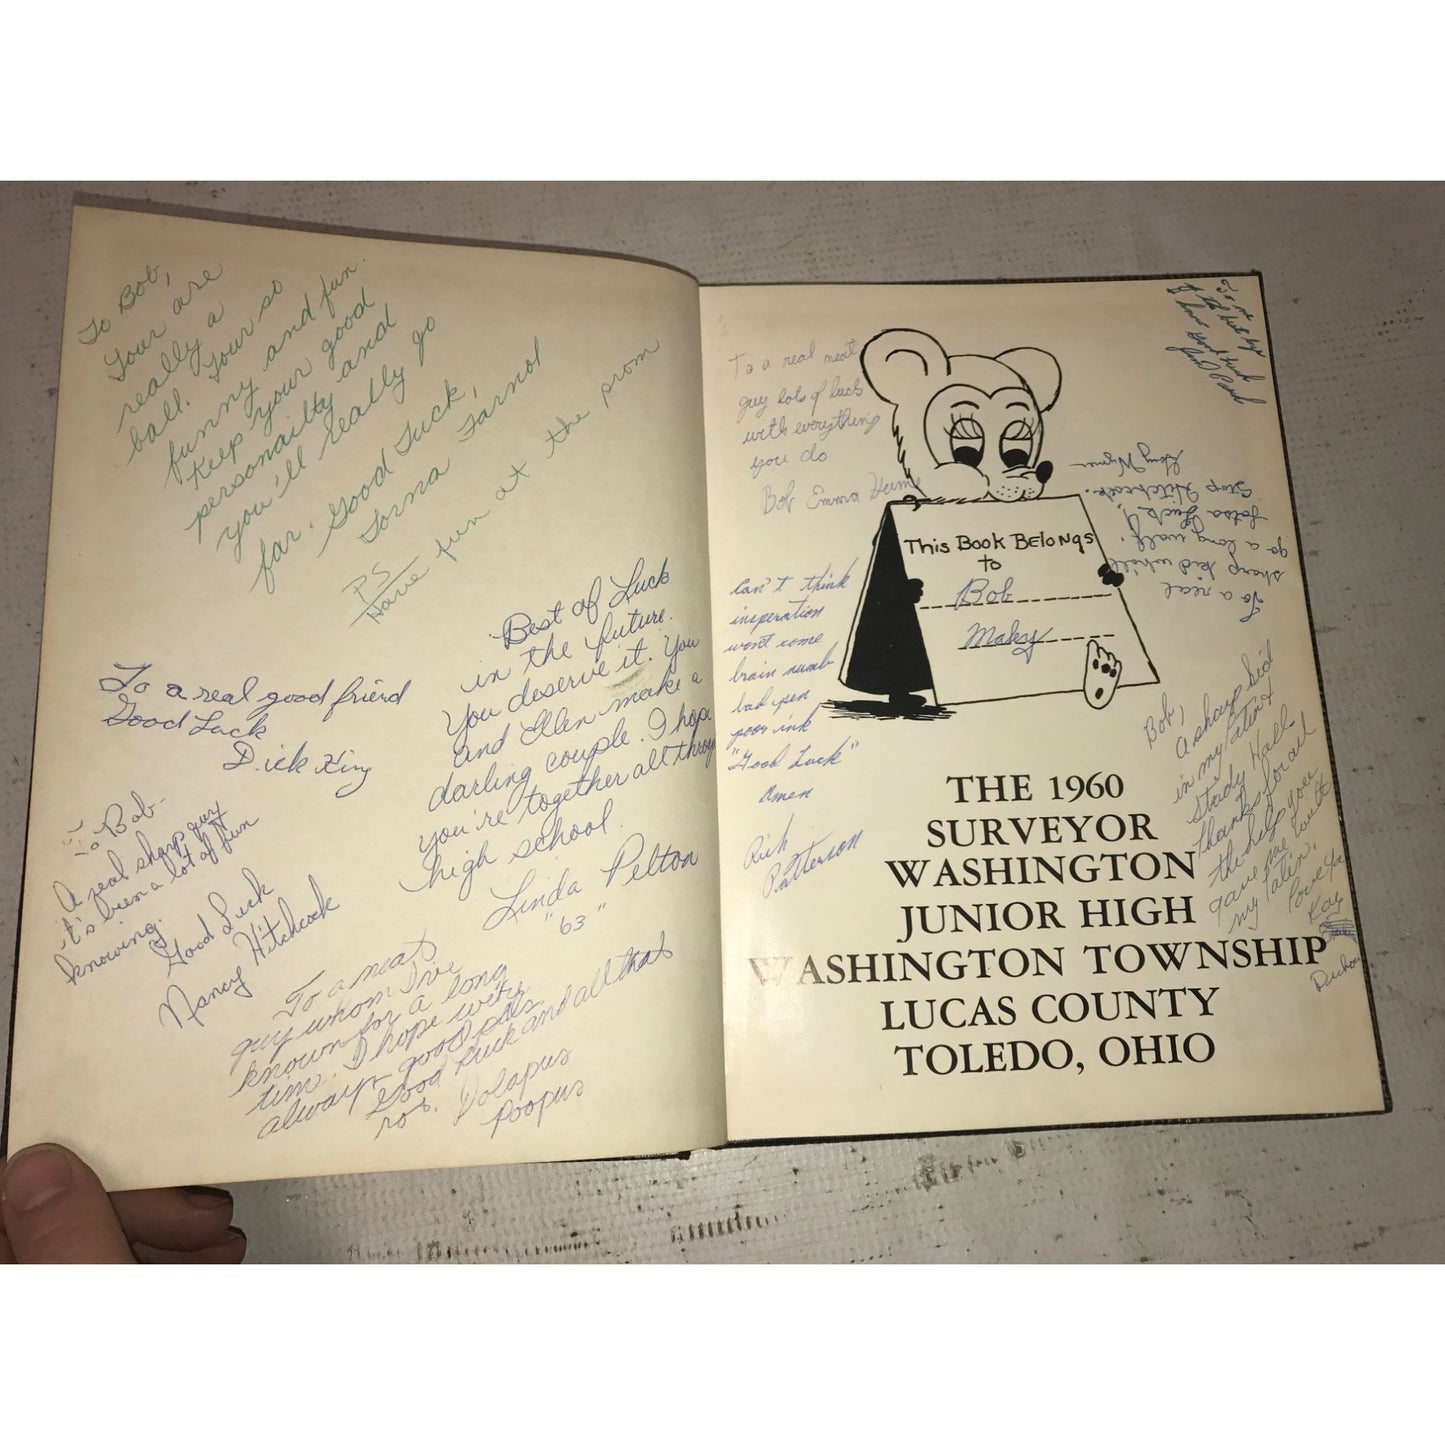 To Bob,
Your are
really a
ball. Your so
funny and fun.
Keep your good
personailty and
you'll really go
far. Good Luck,
PS
Have fun at the prom
Best of Luck
in the future.
You deserve it. You
and Ellen make a
darling couple. I hope
you're together all through
high school.
Linda Pelton
"63"
To a real good friend
Good Luck
Dick King
To Bob-
A real sharp guy
it's been a lot of fun
knowing.
Good Luck
Nancy Hitchcock
To a neat
guy whom I've
known for a long
time. I hope we're
always good pals.
Good Luck and all that
rot.
Poopus
To a real neat
guy lots of luck
with everything
you do
Bob Emma
Can't think
insperation
won't come
brain numb
bad pen
poor ink
"Good Luck"
Amen
Rich
Patterson
This Book Belongs
to
Bob
Maky
To a real
sharp kid while
go a long walk,
Lotsa Luck!,
Stop Hitchcock.
Bob,
A sharp kid
in my Latin &
Study Hall-
Thanks for all
the help you
gave me with
my Latin.
Love ya
Kay
THE 1960
SURVEYOR
WASHINGTON
JUNIOR HIGH
WASHINGTON TOWNSHIP
LUCAS COUNTY
TOLEDO, OHIO